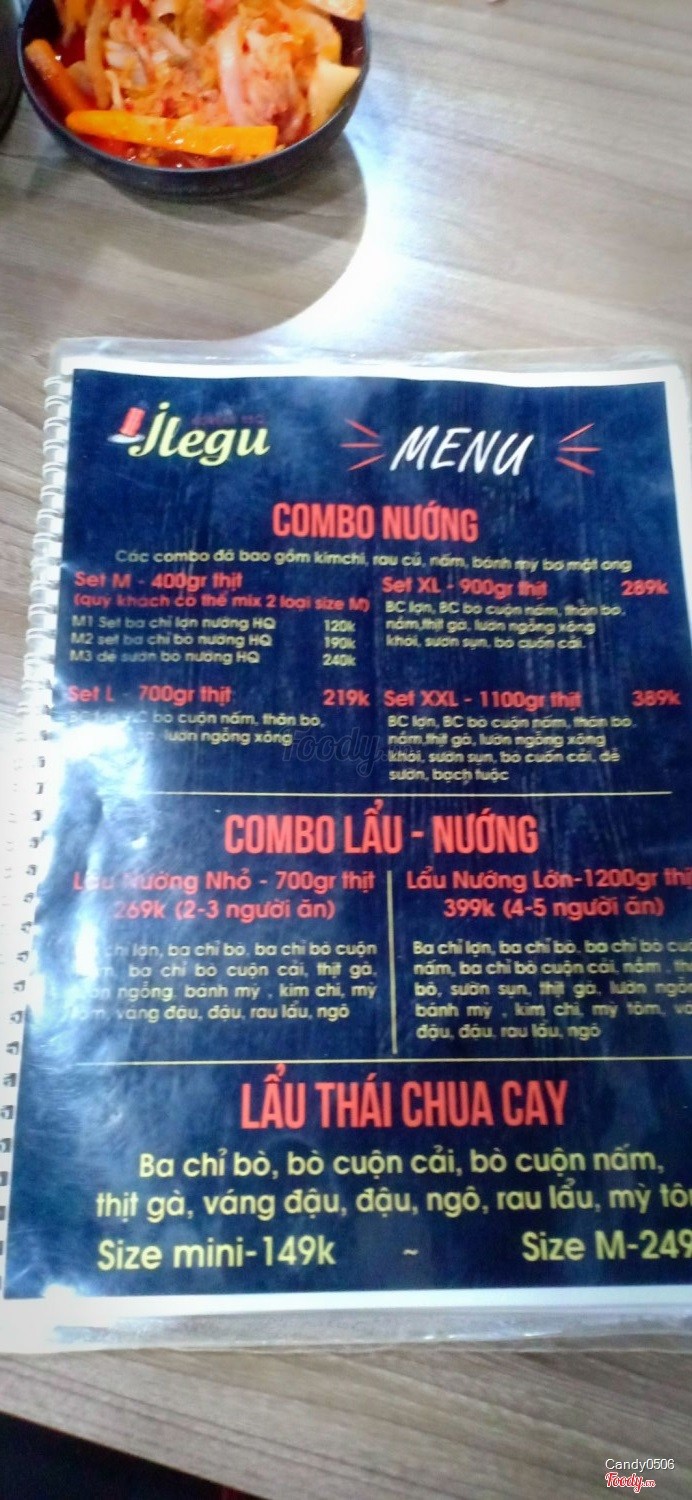 Jlegu
MENU
COMBO NƯỚNG
Các combo đã bao gồm kimchi, rau củ, nấm, bánh mỳ bơ mật ong
Set M - 400gr thịt
(quý khách có thể mix 2 loại size M)
M1 Set ba chỉ lợn nướng HQ 120k
M2 set ba chỉ bò nướng HQ 190k
M3 dẻ sườn bò nướng HQ 240k
Set XL - 900gr thịt 289k
BC lợn, BC bò cuộn nấm, thăn bò,
nầm,thịt gà, lườn ngỗng xông
khói, sườn sụn, bò cuốn cải.
Set L - 700gr thịt 219k
bò cuộn nấm, thăn bò,
gà, lườn ngỗng xông
Set XXL - 1100gr thịt 389k
BC lợn, BC bò cuộn nấm, thăn bò,
nầm,thịt gà, lườn ngỗng xông
khói, sườn sụn, bò cuốn cải, dẻ
sườn, bạch tuộc
COMBO LẨU - NƯỚNG
Lẩu Nướng Nhỏ - 700gr thịt
269k (2-3 người ăn)
chỉ lợn, ba chỉ bò, ba chỉ bò cuộn
ba chỉ bò cuộn cải, thịt gà,
ngỗng, bánh mỳ , kim chi, mỳ
váng đậu, đậu, rau lẩu, ngô
Lẩu Nướng Lớn-1200gr thị
399k (4-5 người ăn)
Ba chỉ lợn, ba chỉ bò, ba chỉ bò
nấm, ba chỉ bò cuộn cải, nầm ,
bò, sườn sụn, thịt gà, lườn
bánh mỳ , kim chi, mỳ tôm,
đậu, đậu, rau lẩu, ngô
LẨU THÁI CHUA CAY
Ba chỉ bò, bò cuộn cải, bò cuộn nấm,
thịt gà, váng đậu, đậu, ngô, rau lẩu, mỳ
Size mini-149k ~ Size M-249
Foody
Candy0506
Foody.vn